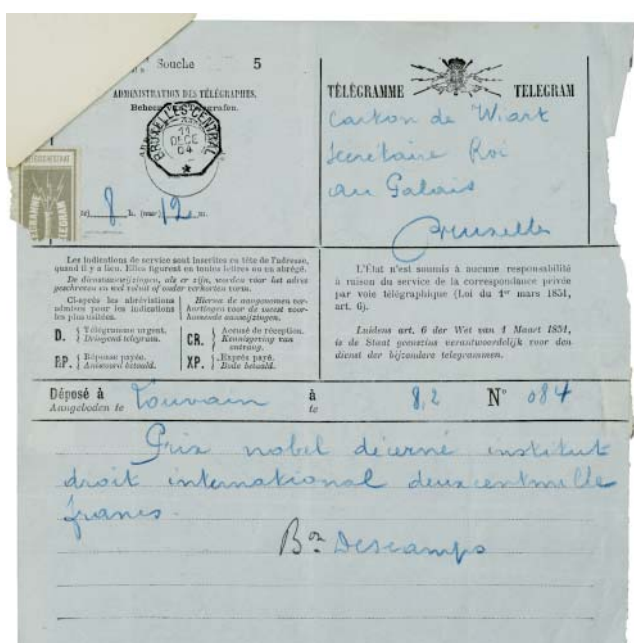 Souche 5
ADMINISTRATION DES TÉLÉGRAPHES.
Beheer Telegrafen.
BRUXELLES CENTRAL
11
DECE
04
8 h. (uur) 12 m.
TÉLÉGRAMME TELEGRAM
TELEGRAM
Carton de Wiart
Secrétaire Roi
au Palais
Bruxelles
Les indications de service sont inscrites en tête de l'adresse,
quand il y a lieu. Elles figurent en toutes lettres ou en abrégé.
De dienstaanwijzingen, als er zijn, worden vóór het adres
geschreven en wel voluit of onder verkorten vorm.
Ci-après les abréviations
admises pour les indications
les plus usitées.
Hierna de aangenomen ver-
kortingen voor de meest voor-
komende aanwijzingen.
D. } Télégramme urgent.
Dringend telegram.
CR. } Accusé de réception.
Kennisgeving van
ontvang.
RP. } Réponse payée.
Antwoord betaald.
XP. } Exprès payé.
Bode betaald.
L'État n'est soumis à aucune responsabilité
à raison du service de la correspondance privée
par voie télégraphique (Loi du 1er mars 1851,
art. 6).
Luidens art. 6 der Wet van 1 Maart 1851,
is de Staat geenszins verantwoordelijk voor den
dienst der bijzondere telegrammen.
Déposé à Louvain à 8,2 N° 084
Aangeboden te te
Prix nobel décerné institut
droit international deuxcentmille
francs.
Bon Descamps